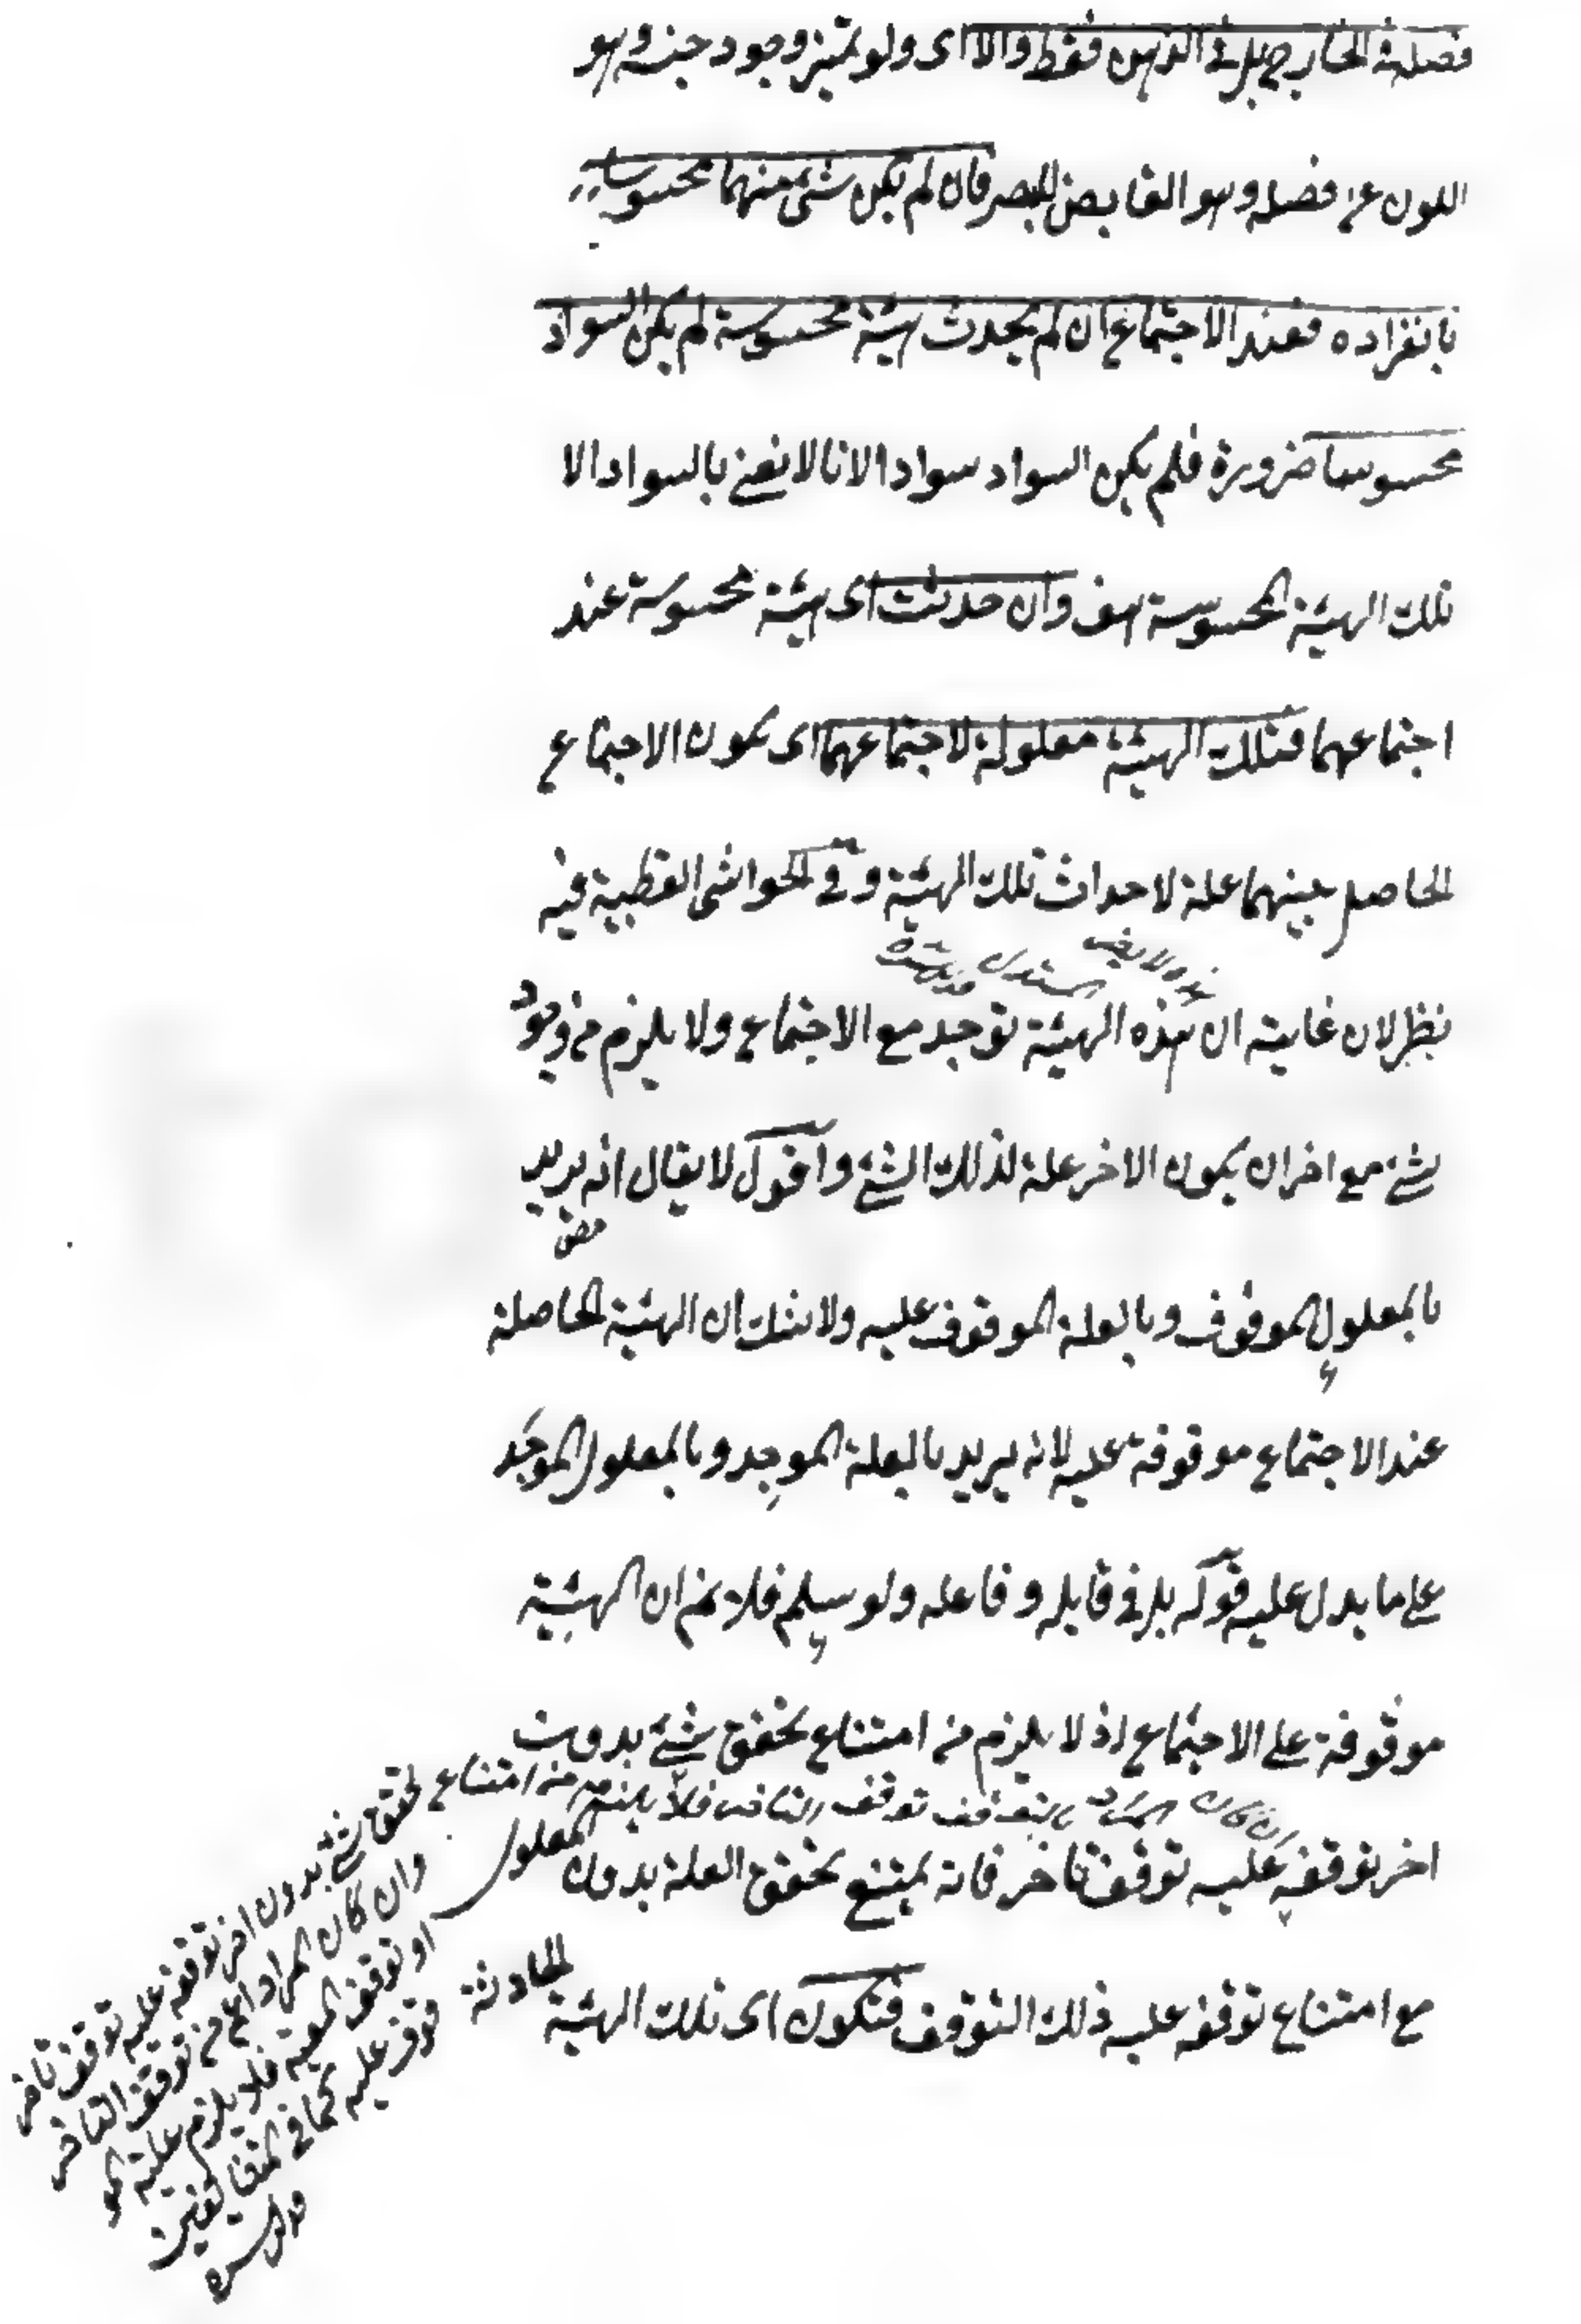 فصله في الخارج بل في الذهن فقط والا اى ولو تميز وجود جنسه وهو
اللون عن فصله وهو القابض للبصر فان لم يكن شئ منهما محسوسا
بانفراده فعند الاجتماع ان لم يحدث هيئة محسوسة لم يكن السواد
محسوسا ضرورة فلم يكن السواد سوادا لانا لا نعنى بالسواد الا
تلك الهيئة المحسوسة هف وان حدثت اى هيئة محسوسة عند
اجتماعهما فتلك الهيئة معلولة لاجتماعهما اى يكون الاجتماع
الحاصل بينهما علة لاحداث تلك الهيئة وفى الحواشى القطبية فيه
نظر لان غايته ان هذه الهيئة توجد مع الاجتماع ولا يلزم من وجود
شئ مع اخر ان يكون الاخر علة لذلك الشئ واقول لا يقال انه يريد
بالمعلول الموقوف وبالعلة الموقوف عليه ولا شك ان الهيئة الحاصلة
عند الاجتماع موقوفة عليه لانه يريد بالعلة الموجد وبالمعلول الموجد
على ما يدل عليه قوله بل فى قابله وفاعله ولو سلم فلا نم ان الهيئة
موقوفة على الاجتماع اذ لا يلزم من امتناع تحقق شئ بدون
اخر توقفه عليه توقف تاخر فانه يمتنع تحقق العلة بدون المعلول
مع امتناع توقفه عليه ذلك التوقف فتكون اى تلك الهيئة الحادثة
ان كان المراد بالتوقف توقف التاخر فلا يلزم من امتناع تحقق شئ
بدون اخر توقفه عليه توقف تاخر
وان كان المراد اعم من توقف التاخر
او توقف المعية فلا يلزم علية المو
قوف عليه كما فى المتضايفين